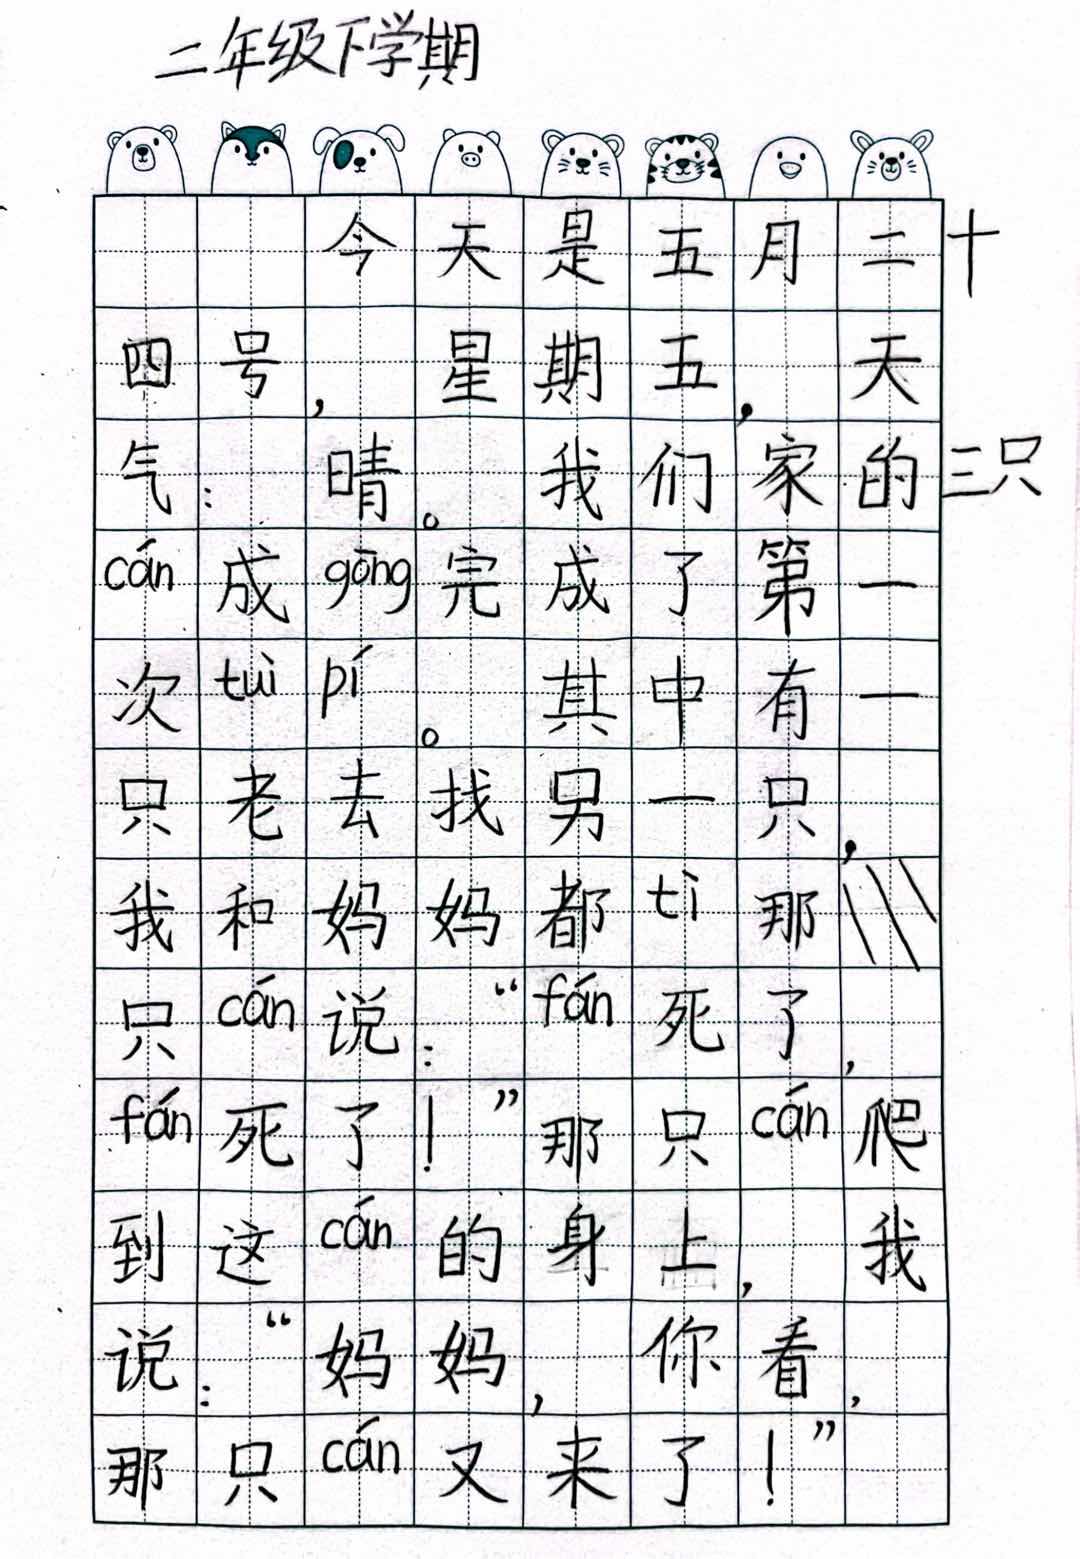 二年级下学期
今天是五月二十
四号，星期五，天
气：晴。我们家的三只
cán成gōng完成了第一
次tuì pí。其中有一
只老去找另一只，
我和妈妈都tì那
只cán说：“fán死了，
fán死了！”那只cán爬
到这cán的身上，我
说：“妈妈，你看，
那只cán又来了！”